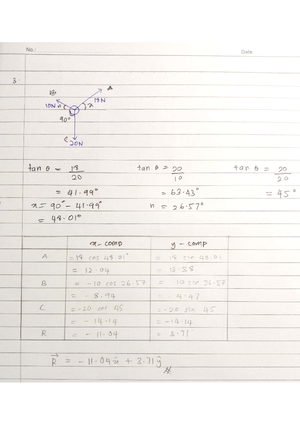 No.: Date:
3.
A
B
18N
10N n x
90°
C
20N
tan θ = 18/20 tan θ = 20/10 tan θ = 20/20
= 41.99° = 63.43° = 45°
x = 90° - 41.99° n = 26.57°
= 48.01°
x-comp y-comp
A = 18 cos 48.01° = 18 sin 48.01
= 12.04 = 13.38
B = -10 cos 26.57 10 sin 26.57
= -8.94 = 4.47
C = -20 cos 45 = -20 sin 45
= -14.14 = -14.14
R = -11.04 = 3.71
R = -11.04 x̂ + 3.71 ŷ